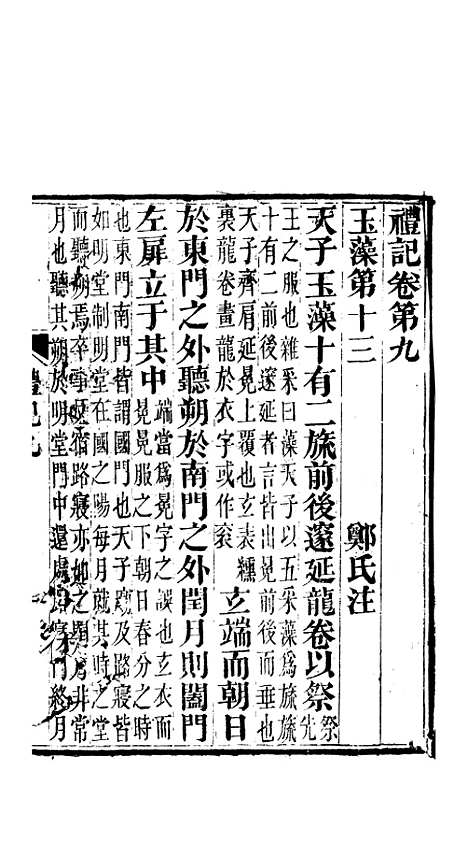 禮記卷第九
玉藻第十三 鄭氏注
天子玉藻十有二旒前後邃延龍卷以祭祭先
王之服也雜采曰藻天子以五采藻爲旒旒
十有二前後邃延者言皆出冕前後而垂也
天子齊肩延冕上覆也玄表纁
裏龍卷畫龍於衣字或作衮 玄端而朝日
於東門之外聽朔於南門之外閏月則闔門
左扉立于其中端當爲冕字之誤也玄衣而
冕冕服之下朝日春分之時
也東門南門皆謂國門也天子廟及路寢皆
如明堂制明堂在國之陽每月就其時之堂
而聽朔焉卒事宿路寢亦如之閏月非常
月也聽其朔於明堂門中還處路寢門終月
禮記九